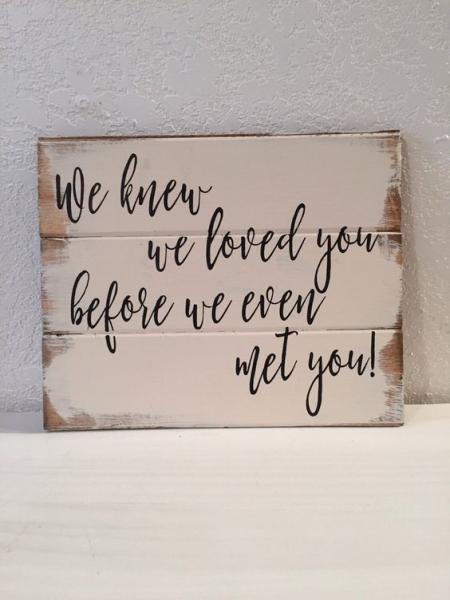 We knew
we loved you
before we even
met you!